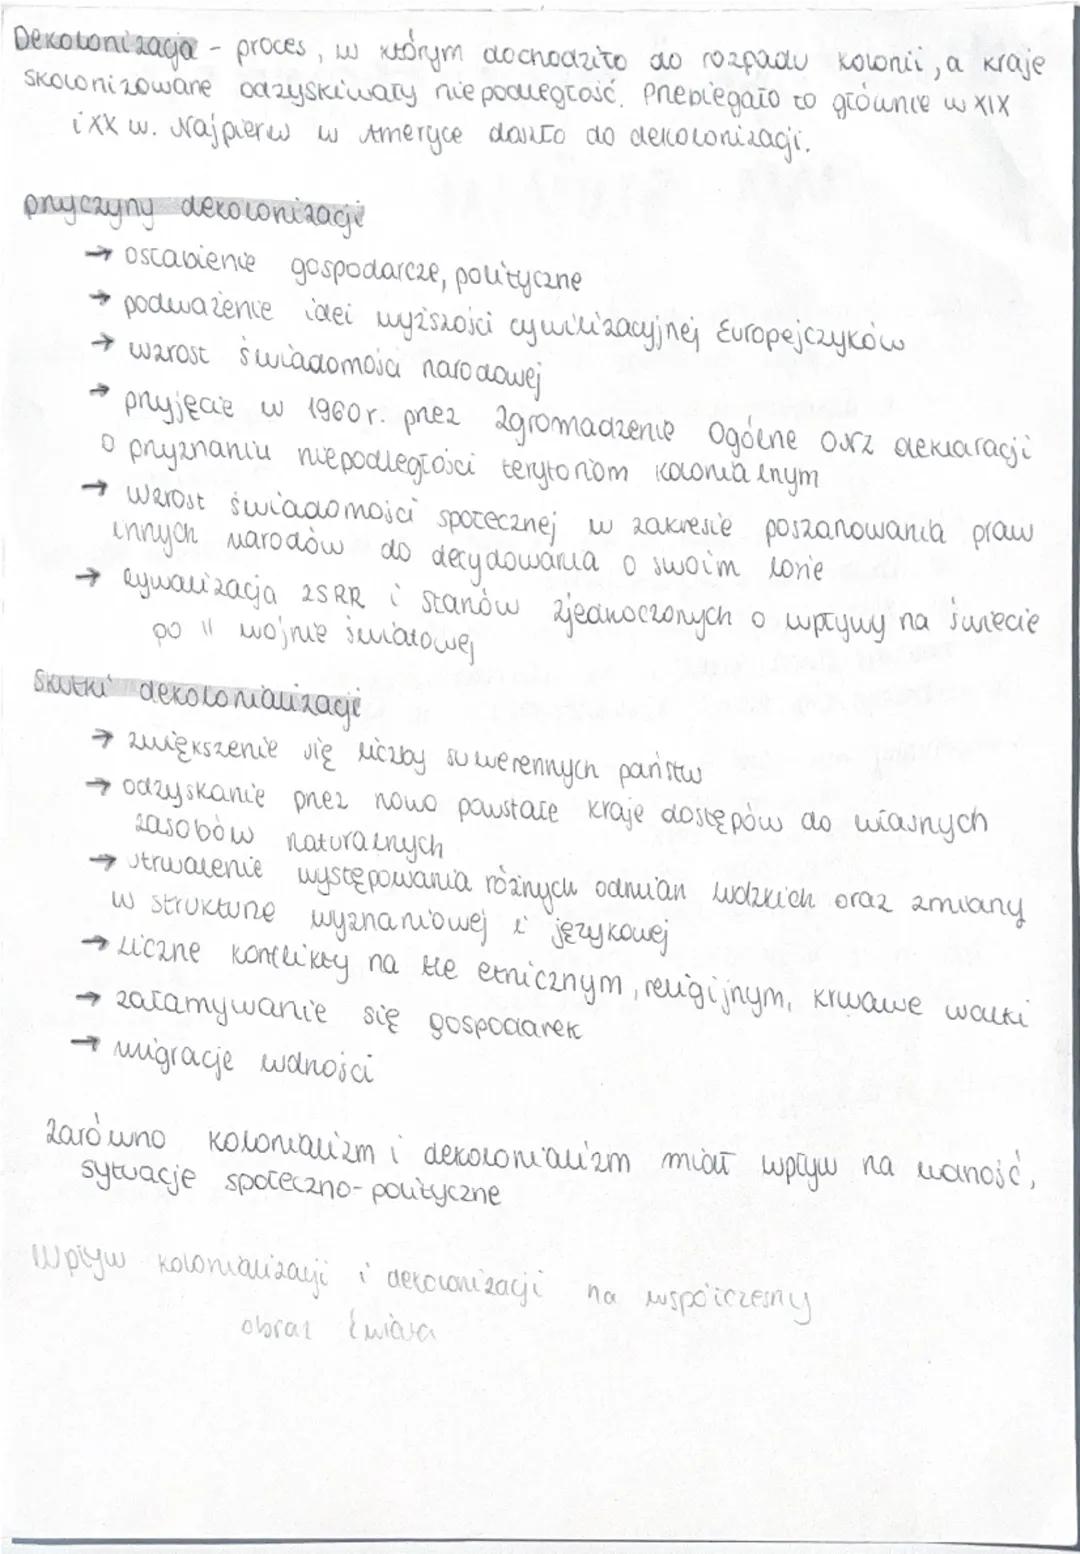 Dekolonizacja - proces, w którym dochodziło do rozpadu kolonii, a kraje
skolonizowane odzyskiwały niepodległość. Przebiegało to głównie w XIX
i XX w. Najpierw w Ameryce doszło do dekolonizacji.
przyczyny dekolonizacji
→ osłabienie gospodarcze, polityczne
→ podważenie idei wyższości cywilizacyjnej Europejczyków
→ wzrost świadomości narodowej
→ przyjęcie w 1960r. przez Zgromadzenie Ogólne ONZ deklaracji
o przyznaniu niepodległości terytoriom kolonialnym
→ Wzrost świadomości społecznej w zakresie poszanowania praw
innych narodów do decydowania o swoim losie
→ rywalizacja ZSRR i Stanów Zjednoczonych o wpływy na świecie
po II wojnie światowej
Skutki dekolonializacji
→ zwiększenie się liczby suwerennych państw
→ odzyskanie przez nowo powstałe kraje dostępów do własnych
zasobów naturalnych
→ utrwalenie występowania różnych odmian ludzkich oraz zmiany
w strukturze wyznaniowej i językowej
→ Liczne konflikty na tle etnicznym, religijnym, krwawe walki
→ załamywanie się gospodarek
→ migracje ludności
Zarówno kolonializm i dekolonializm miał wpływ na ludność,
sytuacje społeczno-polityczne
Wpływ kolonializacji i dekolonizacji na współczesny
obraz świata